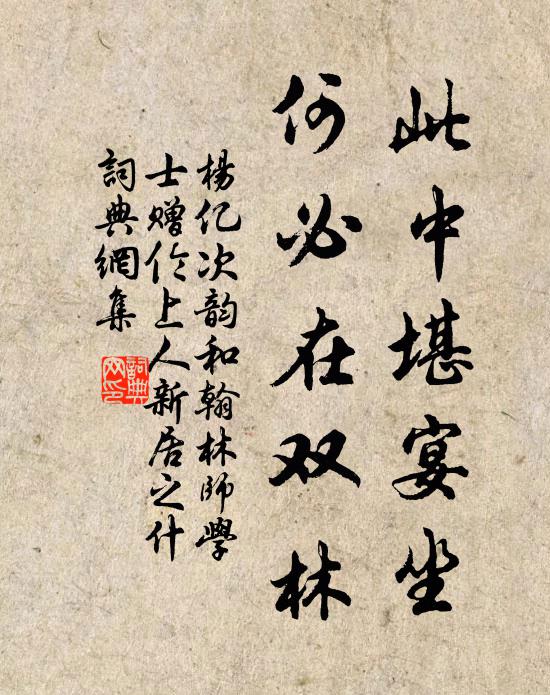 此中堪宴坐
何必在双林
楊亿次韵和翰林師學
士赠伦上人新居之什
詞典網集
詞典
网印